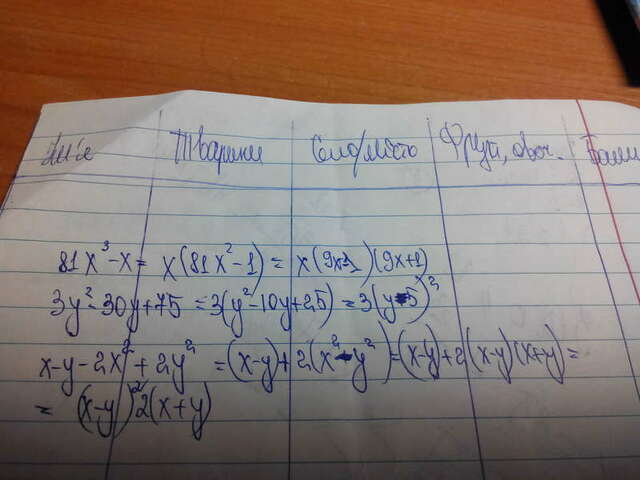 Ім'я Тварини Село/місто Фрукт, овоч. Бали
81x³-x= x(81x²-1)= x(9x-1)(9x+1)
3y²-30y+75 =3(y²-10y+25)=3(y-5)²
x-y-2x²+2y² =(x-y)+2(x²-y²)=(x-y)+2(x-y)(x+y)=
= (x-y)²2(x+y)